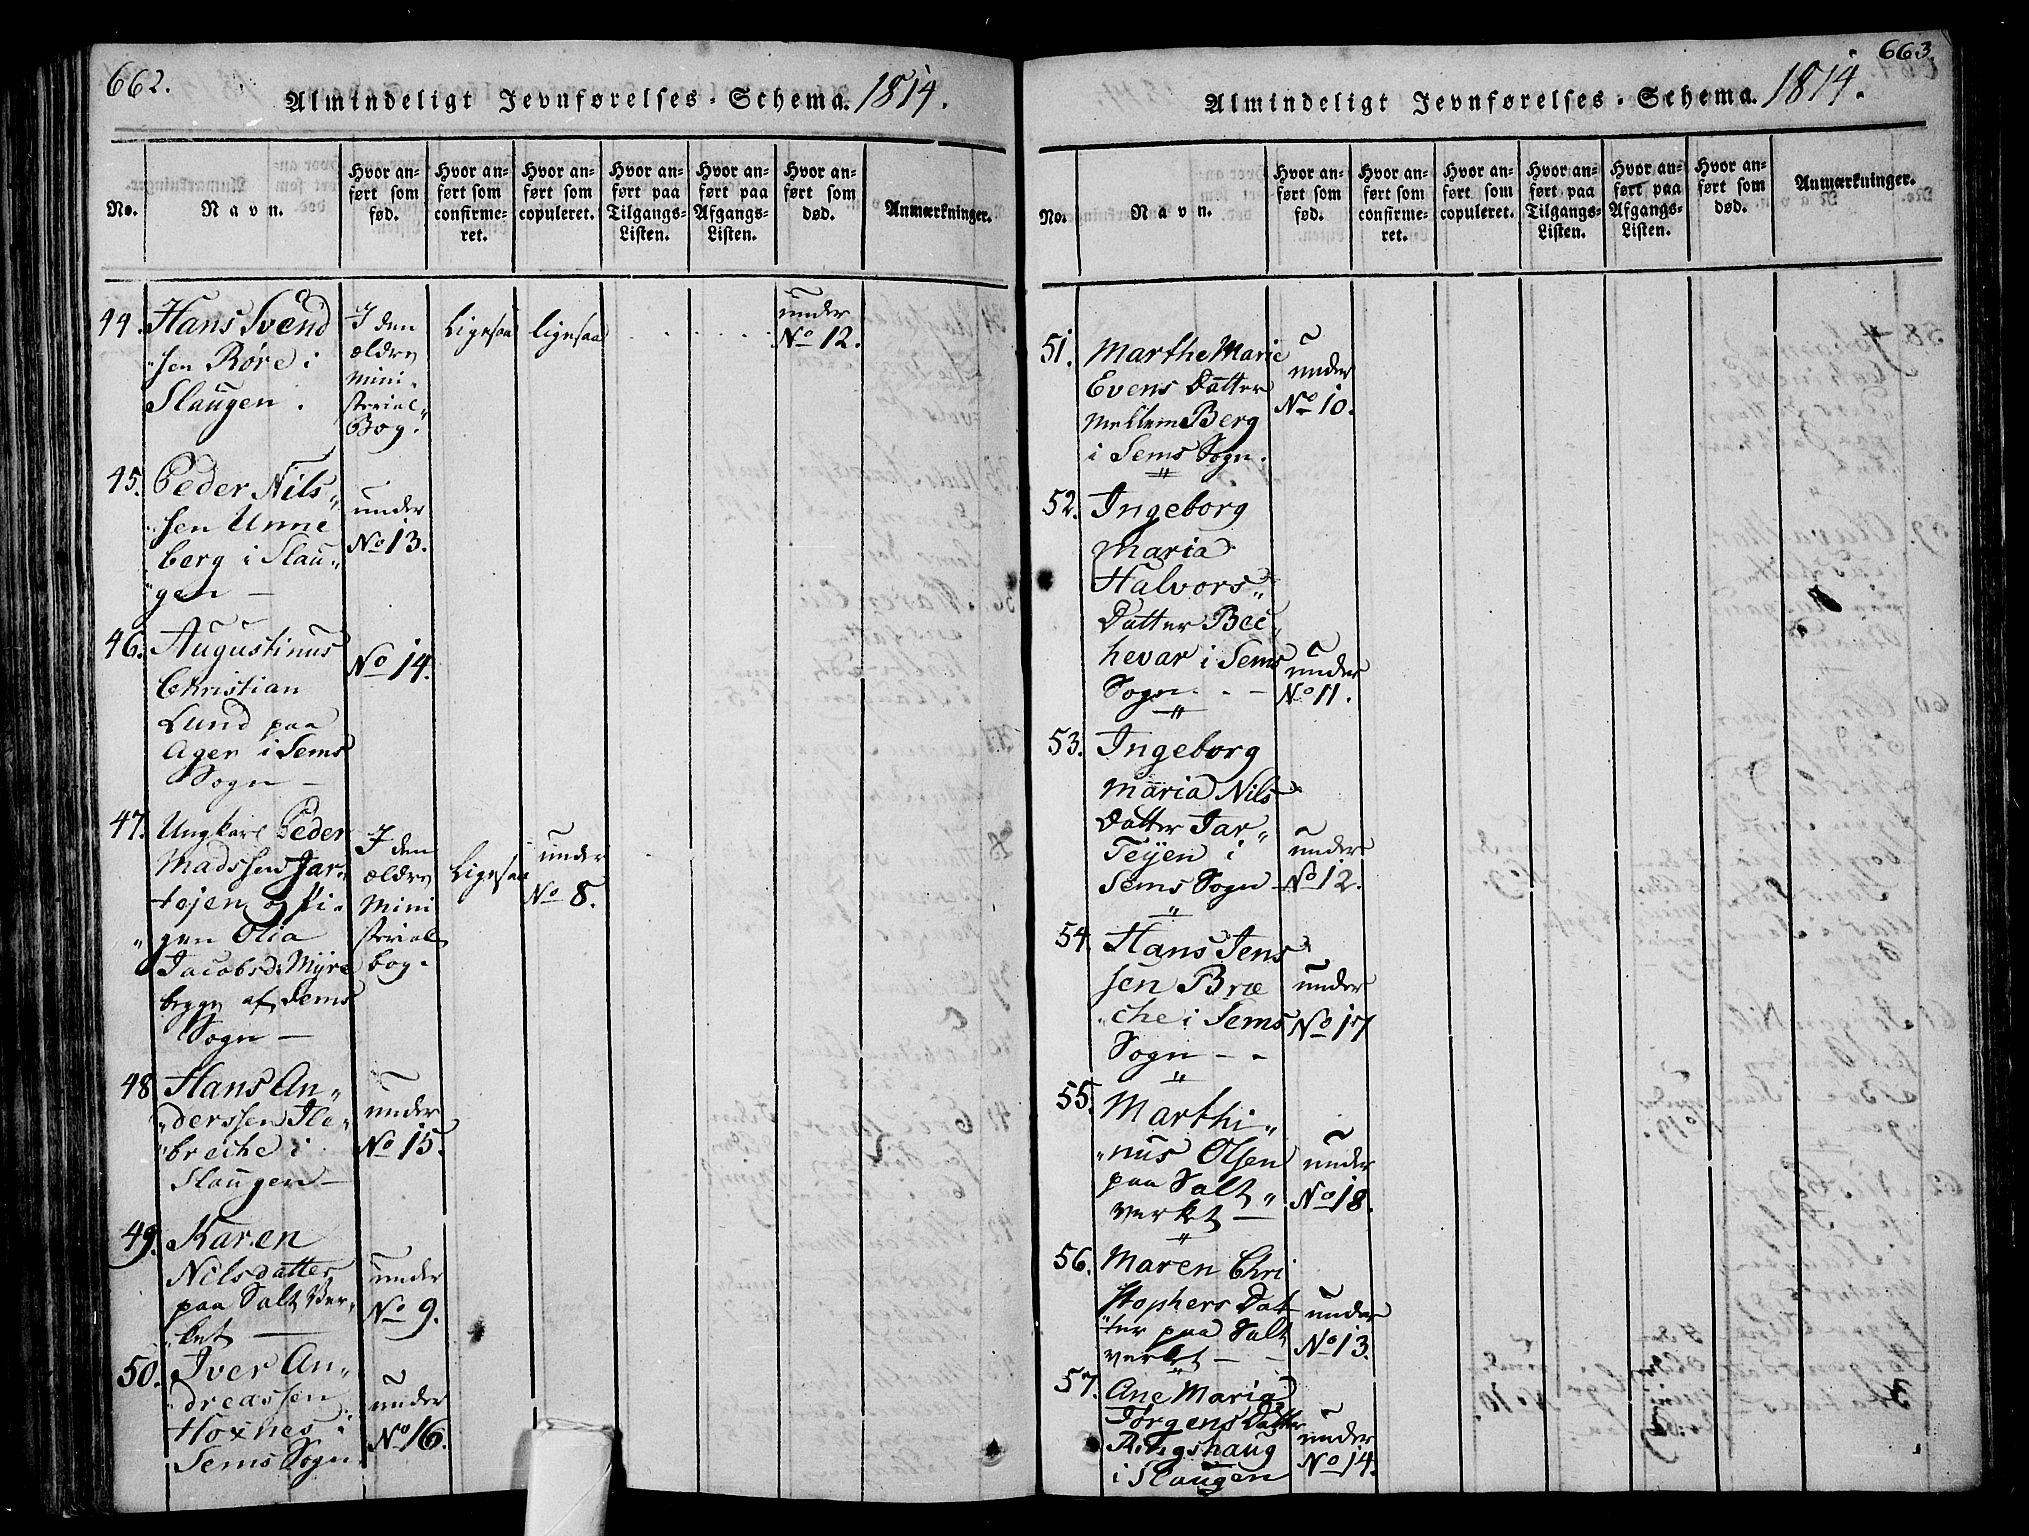 662.
Almindeligt Jevnførelses-Schema. 1814.
No.
Navn.
Hvor an-
ført som
fød.
Hvor an-
ført som
confirme-
ret.
Hvor an-
ført som
copuleret.
Hvor an-
ført paa
Tilgangs-
Listen.
Hvor an-
ført paa
Afgangs-
Listen.
Hvor an-
ført som
død.
Anmærkninger.
44. Hans Svend
sen Røre i
Slaugen.
I den
ældre
Mini-
sterial-
Bog.
Ligesaa
ligesaa
under
No 12.
45. Peder Nils-
sen Unne
berg i Slau-
gen —
under
No 13.
46. Augustinus
Christian
Lund paa
Agen i Sems
Sogn —
No 14.
47. Ungkarl Peder
Madssen Jar-
tejen og Pi-
gen Olia
Jacobsd. Myre
begge af Sems
Sogn —
I den
ældre
Mini
sterial
bog.
Ligesaa
under
No 8.
48 Hans An-
derssen Ile-
breche i
Slaugen —
under
No 15.
49. Karen
Nilsdatter
paa Salt Ver-
ket —
under
No 9.
50. Iver An-
dreassen
Hoxnes i
Sems Sogn
under
No 16.
663.
Almindeligt Jevnførelses-Schema. 1814.
No.
Navn.
Hvor an-
ført som
fød.
Hvor an-
ført som
confirme-
ret.
Hvor an-
ført som
copuleret.
Hvor an-
ført paa
Tilgangs-
Listen.
Hvor an-
ført paa
Afgangs-
Listen.
Hvor an-
ført som
død.
Anmærkninger.
51. Marthe Marie
Evens Datter
Mellem Berg
i Sems Sogn.
under
No 10.
52. Ingeborg
Maria
Halvors-
Datter Bec-
hevar i Sems
Sogn. - —
under
No 11.
53. Ingeborg
Maria Nils
Datter Jar-
Tejen i
Sems Sogn —
under
No 12.
54. Hans Jens
sen Bræ
che i Sems
Sogn - -
under
No 17
55. Marthi-
nus Olsen
paa Salt-
verket —
under
No 18.
56. Maren Chri
stophers Dat
ter paa Salt
verket — -
under
No 13.
57. Ane Maria
Jørgens Datter
Ringshaug
i Slaugen
under
No 14.